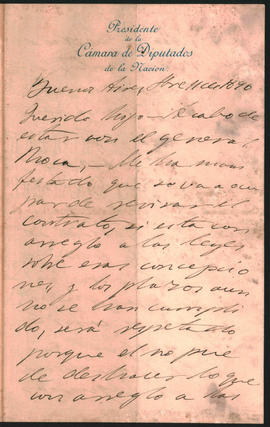 Presidente
de la
Camara de Diputados
de la Nacion
Buenos Aires, 11 de 1890
Querido hijo - Acabo de
estar con el general
Roca, - Me ha mani
festado que se va a ocu
par de revisar el
contrato, si esta con
arreglo a las leyes
sobre esas concepcio
nes, y los plazos aun
no se han cumpli
do, será respetado
porque el no pue
de deshacer lo que
con arreglo a las